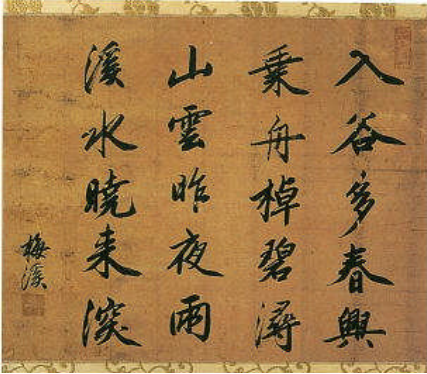 入谷多春興
乗舟棹碧潯
山雲昨夜雨
溪水曉来深
梅溪